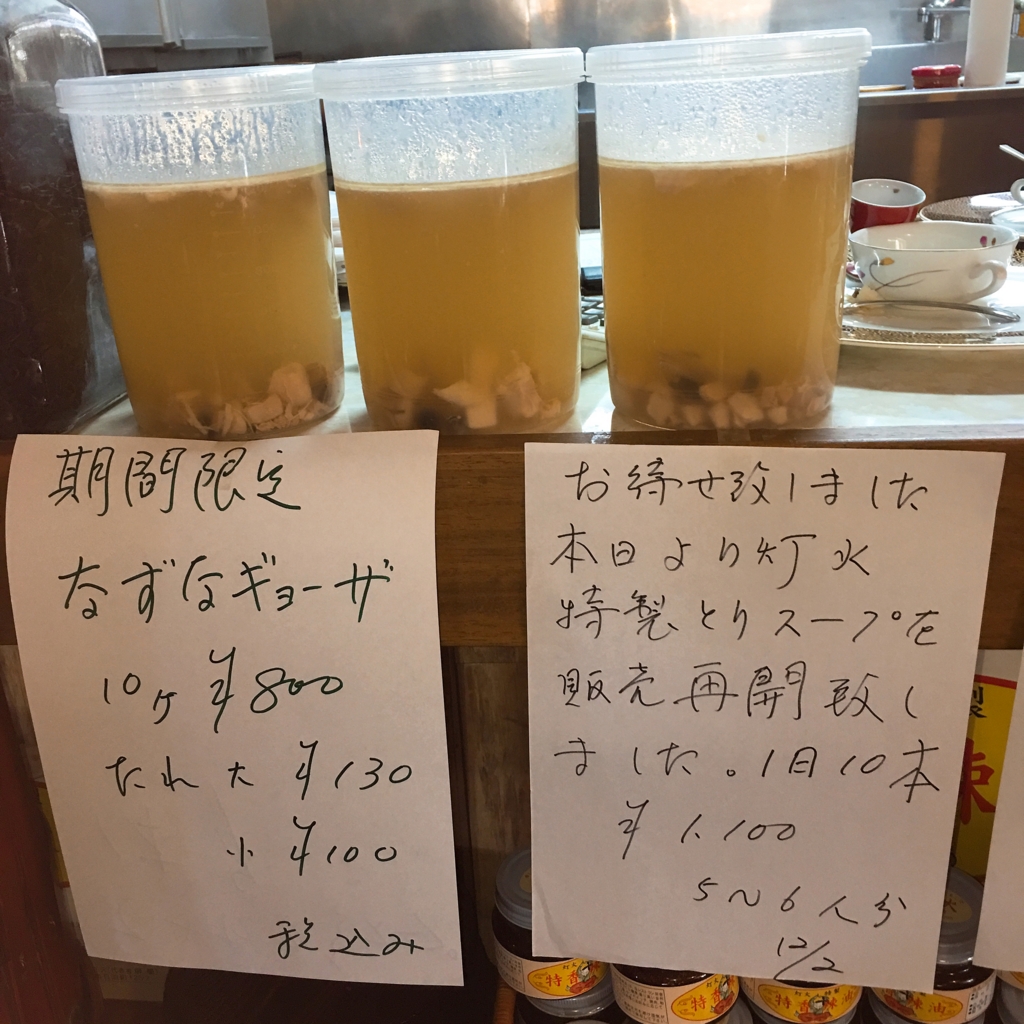 期間限定
なずなギョーザ
10ヶ ¥800
たれ 大 ¥130
小 ¥100
税込み
お待せ致しました
本日より灯火
特製とりスープを
販売再開致し
ました。1日10本
¥1,100
5〜6人分
12/2
製
辣
特香辣油
特香
特香辣油
辣油